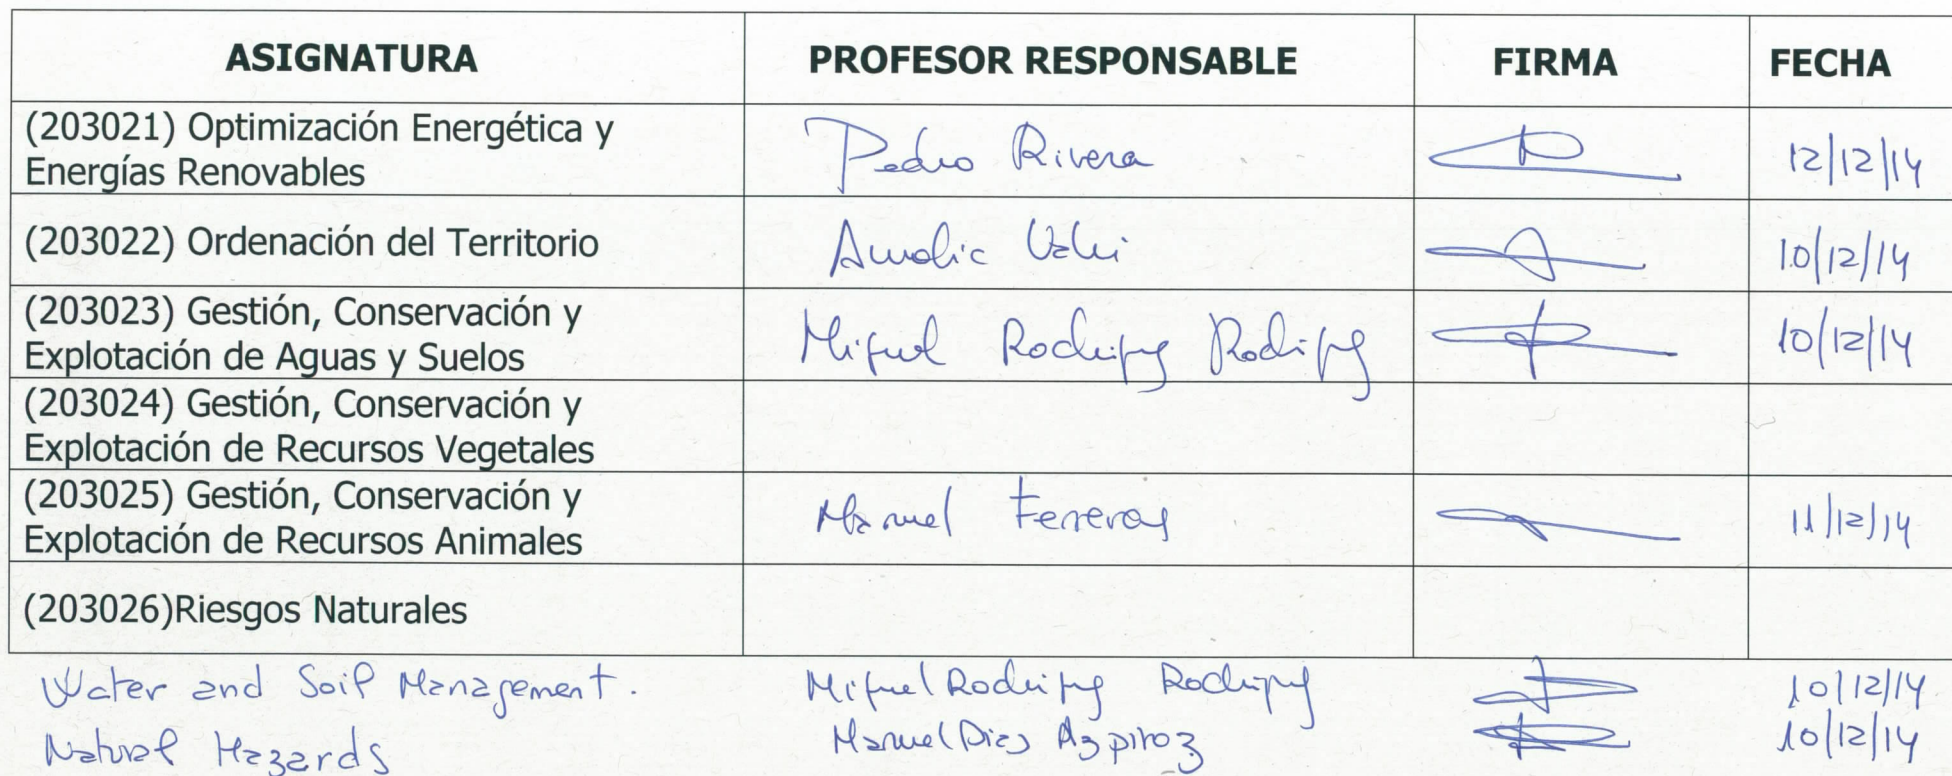 ASIGNATURA PROFESOR RESPONSABLE FIRMA FECHA
(203021) Optimización Energética y
Energías Renovables
Pedro Rivera 12/12/14
(203022) Ordenación del Territorio
10/12/14
(203023) Gestión, Conservación y
Explotación de Aguas y Suelos
Miguel Rodríguez Rodríguez 10/12/14
(203024) Gestión, Conservación y
Explotación de Recursos Vegetales
(203025) Gestión, Conservación y
Explotación de Recursos Animales
Manuel Ferreras 11/12/14
(203026)Riesgos Naturales
Water and Soil Management. Miguel Rodríguez Rodríguez 10/12/14
Natural Hazards Manuel Díaz Azpiroz 10/12/14